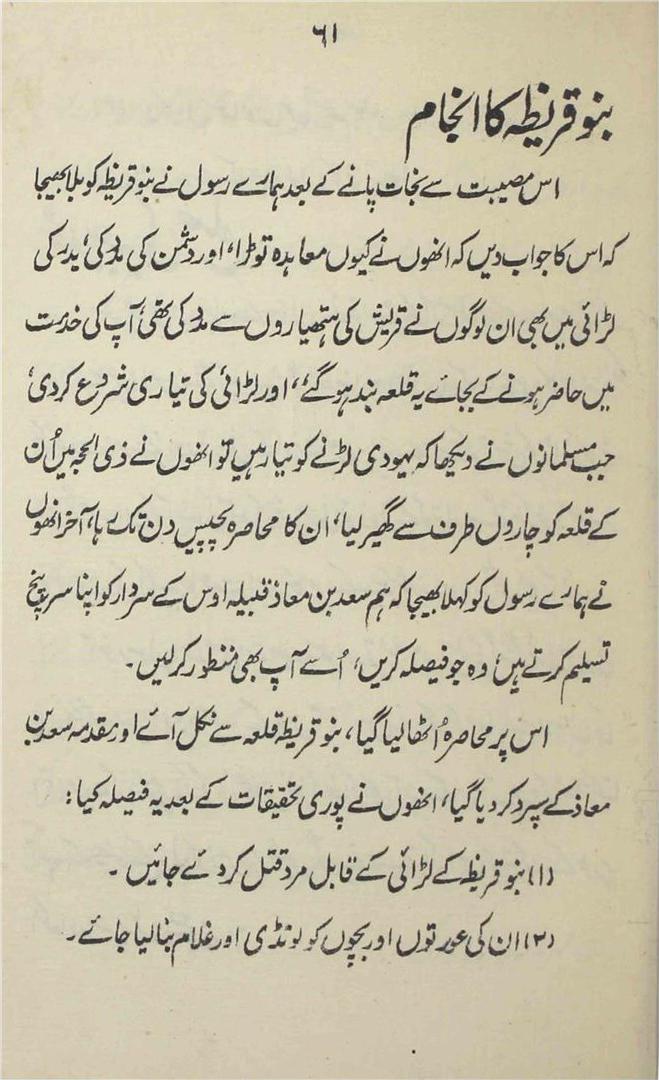 ۶۱
بنو قریظہ کا انجام
اس مصیبت سے نجات پانے کے بعد ہمارے رسول نے بنو قریظہ کو بلا بھیجا
کہ اس کا جواب دیں کہ انھوں نے کیوں معاہدہ توڑا، اور دشمن کی مدد کی، بدر کی
لڑائی میں بھی ان لوگوں نے قریش کی ہتھیاروں سے مدد کی تھی، آپ کی خدمت
میں حاضر ہونے کے بجائے یہ قلعہ بند ہو گئے، اور لڑائی کی تیاری شروع کر دی،
جب مسلمانوں نے دیکھا کہ یہودی لڑنے کو تیار ہیں تو انھوں نے ذی الحجہ میں اُن
کے قلعہ کو چاروں طرف سے گھیر لیا، ان کا محاصرہ پچیس دن تک رہا، آخر انھوں
نے ہمارے رسول کو کہلا بھیجا کہ ہم سعد بن معاذ قبیلہ اوس کے سردار کو اپنا سرپنچ
تسلیم کرتے ہیں، وہ جو فیصلہ کریں، اُسے آپ بھی منظور کر لیں۔
اس پر محاصرہ اُٹھا لیا گیا، بنو قریظہ قلعہ سے نکل آئے اور مقدمہ سعد بن
معاذ کے سپرد کر دیا گیا، انھوں نے پوری تحقیقات کے بعد یہ فیصلہ کیا:
(۱) بنو قریظہ کے لڑائی کے قابل مرد قتل کر دئے جائیں۔
(۲) ان کی عورتوں اور بچوں کو لونڈی اور غلام بنا لیا جائے۔